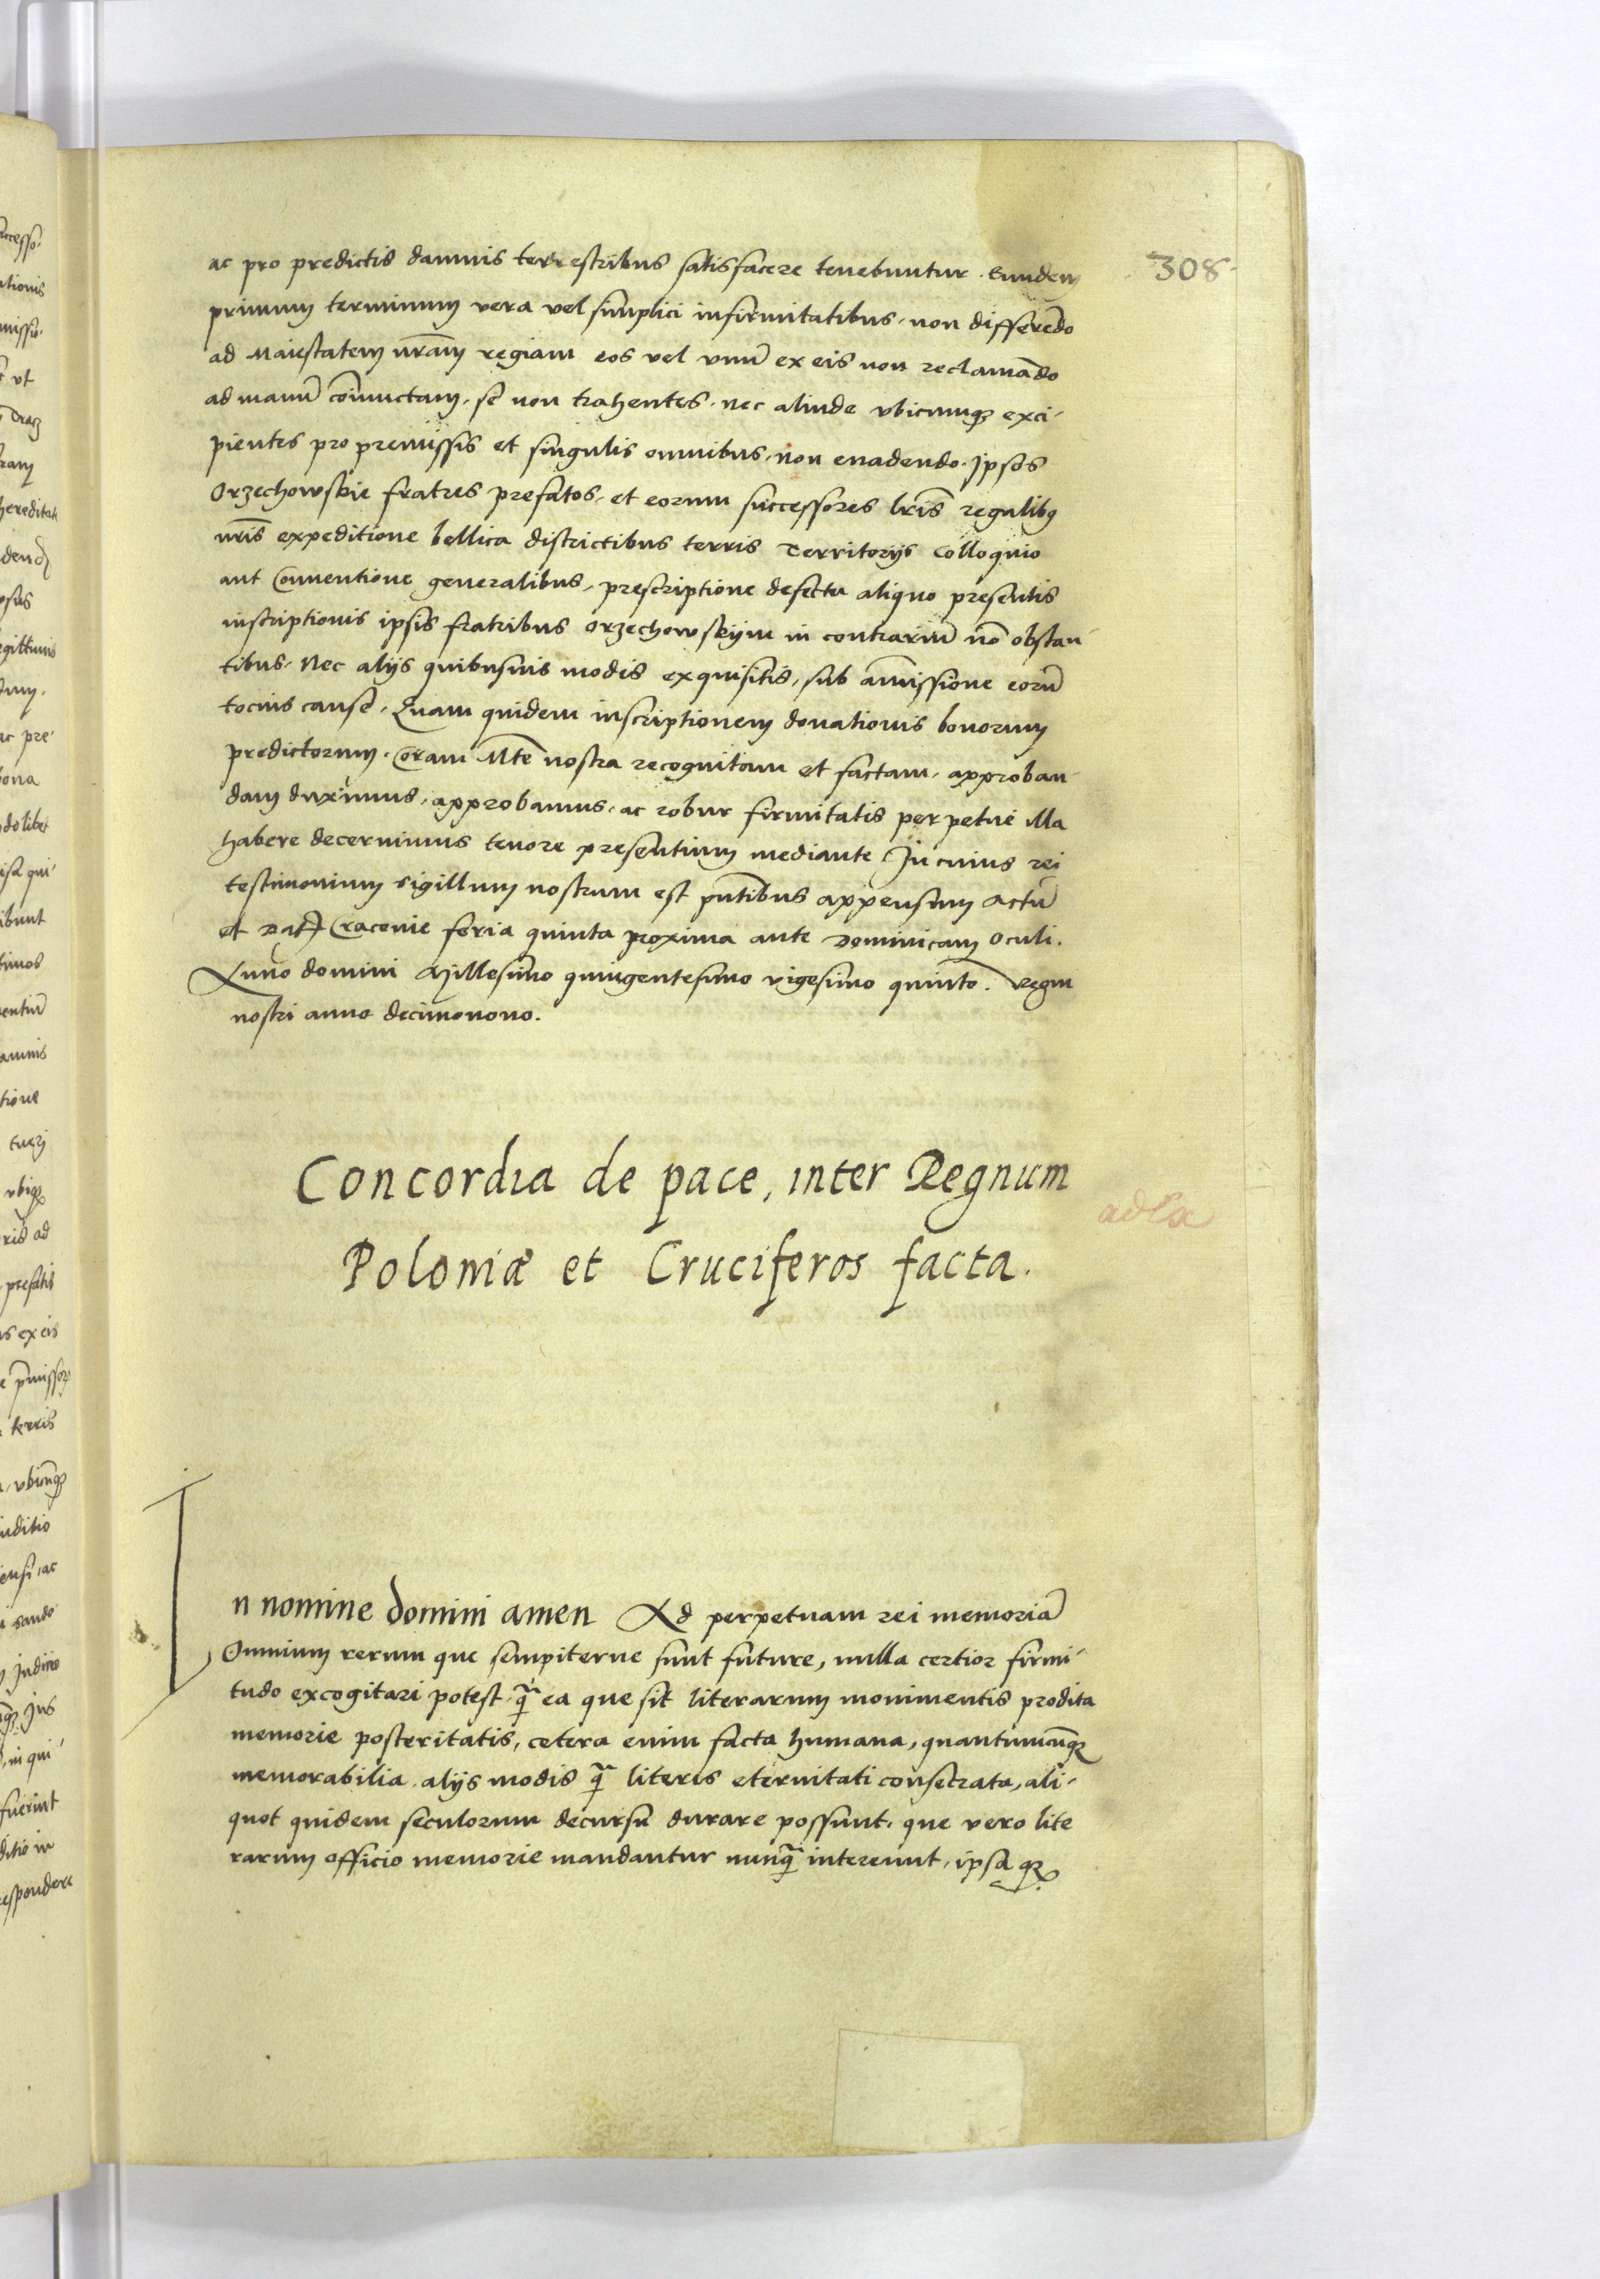 308
ac pro predictis damnis terrestribus satisfacere tenebuntur. Eundem
primum terminum vera vel simplici infirmitatibus, non differẽdo
ad Maiestatem nrãm regiam eos vel vnũ ex eis non reclamãdo
ad manũ coniunctam, se non trahentes, nec aliude vbicunqȝ exci-
pientes pro premissis et singulis omnibus, non euadendo. Ipsos
Orzechowskie fratres prefatos, et eorum successores lrĩs regalibȝ
nrĩs expeditione bellica districtibus terris Territorijs Colloquio
aut Conuentione generalibus, prescriptione defectu aliquo presentis
inscriptionis ipsis fratribus Orzechowskijm in contrariũ nõ obstan-
tibus. Nec alijs quibusuis modis exquisitis, sub amissione eorũ
tocius cause. Quam quidem inscriptionem donationis bonorum
predictorum. Coram Mte nostra recognitam et factam, approban-
dam duximus, approbamus, ac robur firmitatis perpetue illa
habere decernimus tenore presentium mediante In cuius rei
testimonium sigillum nostrum est pñtibus appensum Actũ
et Dat Cracouie feria quinta proxima ante Dominicam Oculi.
Anno domini Millesimo quingentesimo vigesimo quinto. Regni
nostri anno decimonono.
Concordia de pace, inter Regnum
Poloniæ et Cruciferos facta.
In nomine domini amen Ad perpetuam rei memoriã
Omnium rerum que sempiterne sunt future, nulla certior firmi-
tudo excogitari potest, q̃ ea que sit literarum monimentis prodita
memorie posteritatis, cetera enim facta humana, quantumcũqȝ
memorabilia, alijs modis q̃ literis eternitati consecrata, ali-
quot quidem seculorum decursu durare possunt, que vero lite
rarum officio memorie mandantur nunq̃ intereunt, ipsa qȝ